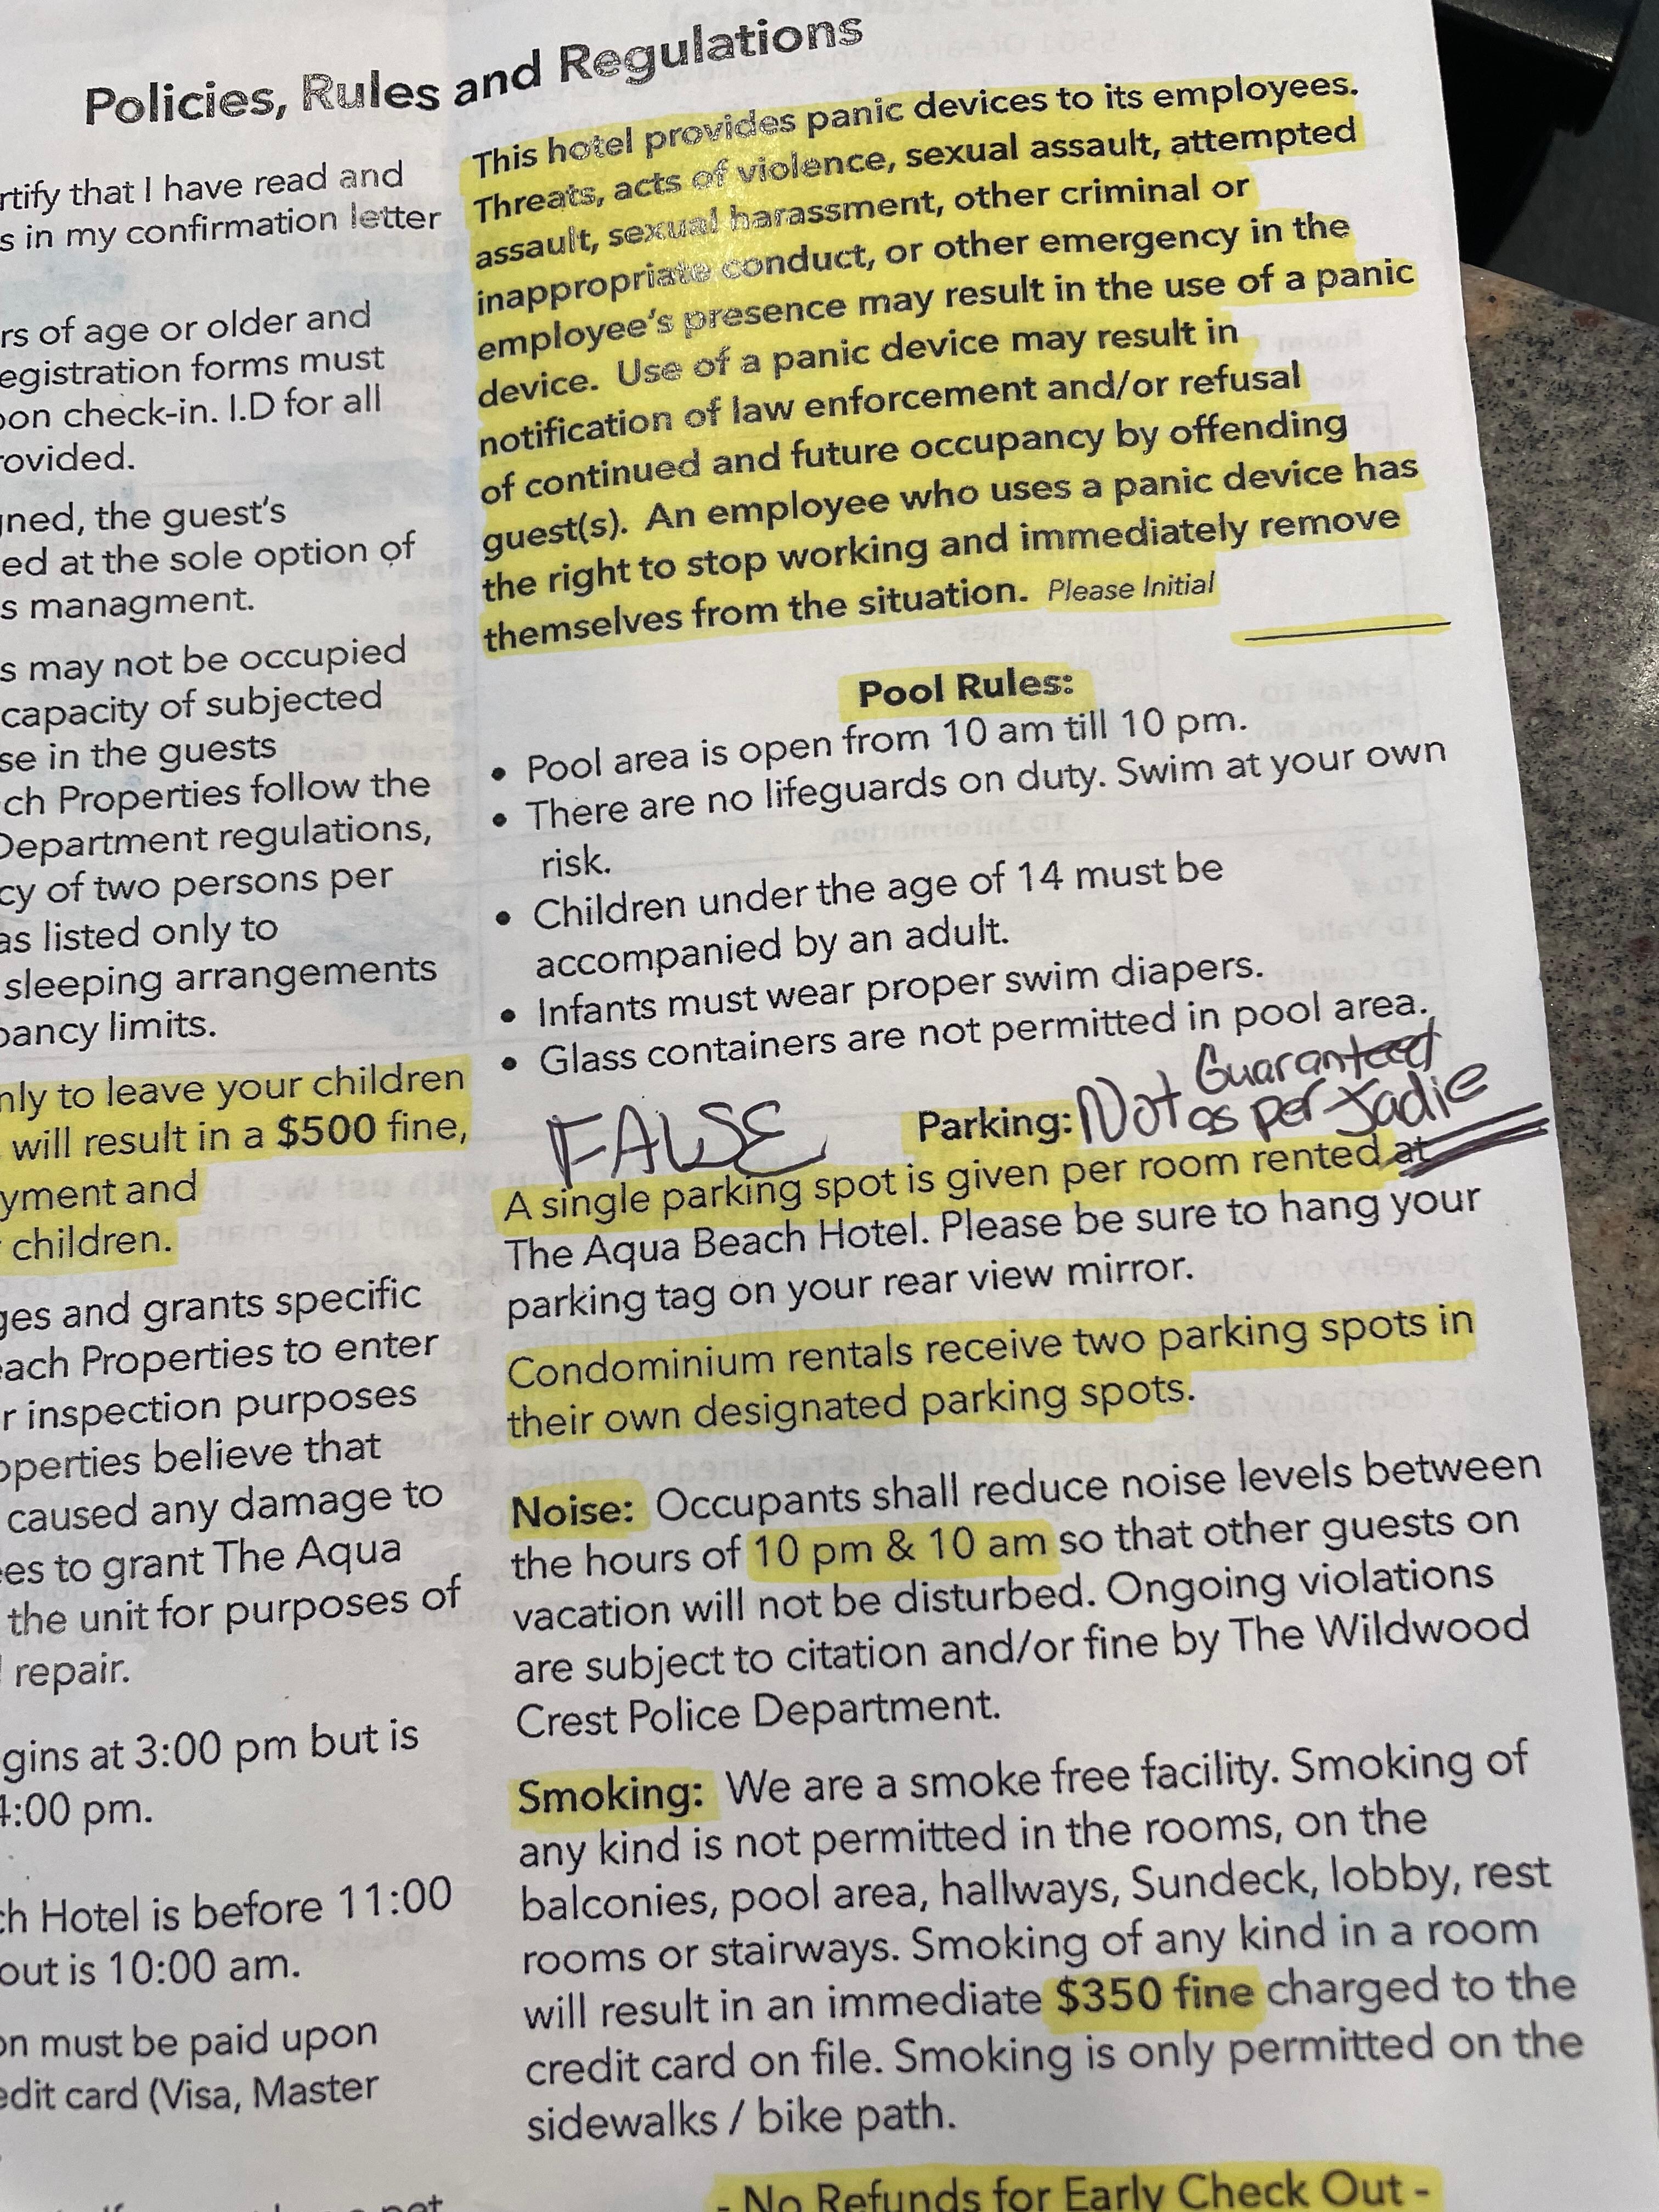 Policies, Rules and Regulations
rtify that I have read and
s in my confirmation letter
rs of age or older and
egistration forms must
oon check-in. I.D for all
rovided.
gned, the guest's
ed at the sole option of
s managment.
s may not be occupied
capacity of subjected
se in the guests
ch Properties follow the
Department regulations,
cy of two persons per
as listed only to
sleeping arrangements
pancy limits.
nly to leave your children
will result in a $500 fine,
yment and
children.
ges and grants specific
each Properties to enter
r inspection purposes
operties believe that
caused any damage to
ees to grant The Aqua
the unit for purposes of
repair.
gins at 3:00 pm but is
4:00 pm.
ch Hotel is before 11:00
out is 10:00 am.
on must be paid upon
edit card (Visa, Master
This hotel provides panic devices to its employees.
Threats, acts of violence, sexual assault, attempted
assault, sexual harassment, other criminal or
inappropriate conduct, or other emergency in the
employee's presence may result in the use of a panic
device. Use of a panic device may result in
notification of law enforcement and/or refusal
of continued and future occupancy by offending
guest(s). An employee who uses a panic device has
the right to stop working and immediately remove
themselves from the situation. Please Initial
Pool Rules:
• Pool area is open from 10 am till 10 pm.
• There are no lifeguards on duty. Swim at your own
risk.
• Children under the age of 14 must be
accompanied by an adult.
• Infants must wear proper swim diapers.
• Glass containers are not permitted in pool area.
Guaranteed
FALSE Parking: Not as per Jadie
A single parking spot is given per room rented at
The Aqua Beach Hotel. Please be sure to hang your
parking tag on your rear view mirror.
Condominium rentals receive two parking spots in
their own designated parking spots.
Noise: Occupants shall reduce noise levels between
the hours of 10 pm & 10 am so that other guests on
vacation will not be disturbed. Ongoing violations
are subject to citation and/or fine by The Wildwood
Crest Police Department.
Smoking: We are a smoke free facility. Smoking of
any kind is not permitted in the rooms, on the
balconies, pool area, hallways, Sundeck, lobby, rest
rooms or stairways. Smoking of any kind in a room
will result in an immediate $350 fine charged to the
credit card on file. Smoking is only permitted on the
sidewalks / bike path.
- No Refunds for Early Check Out -